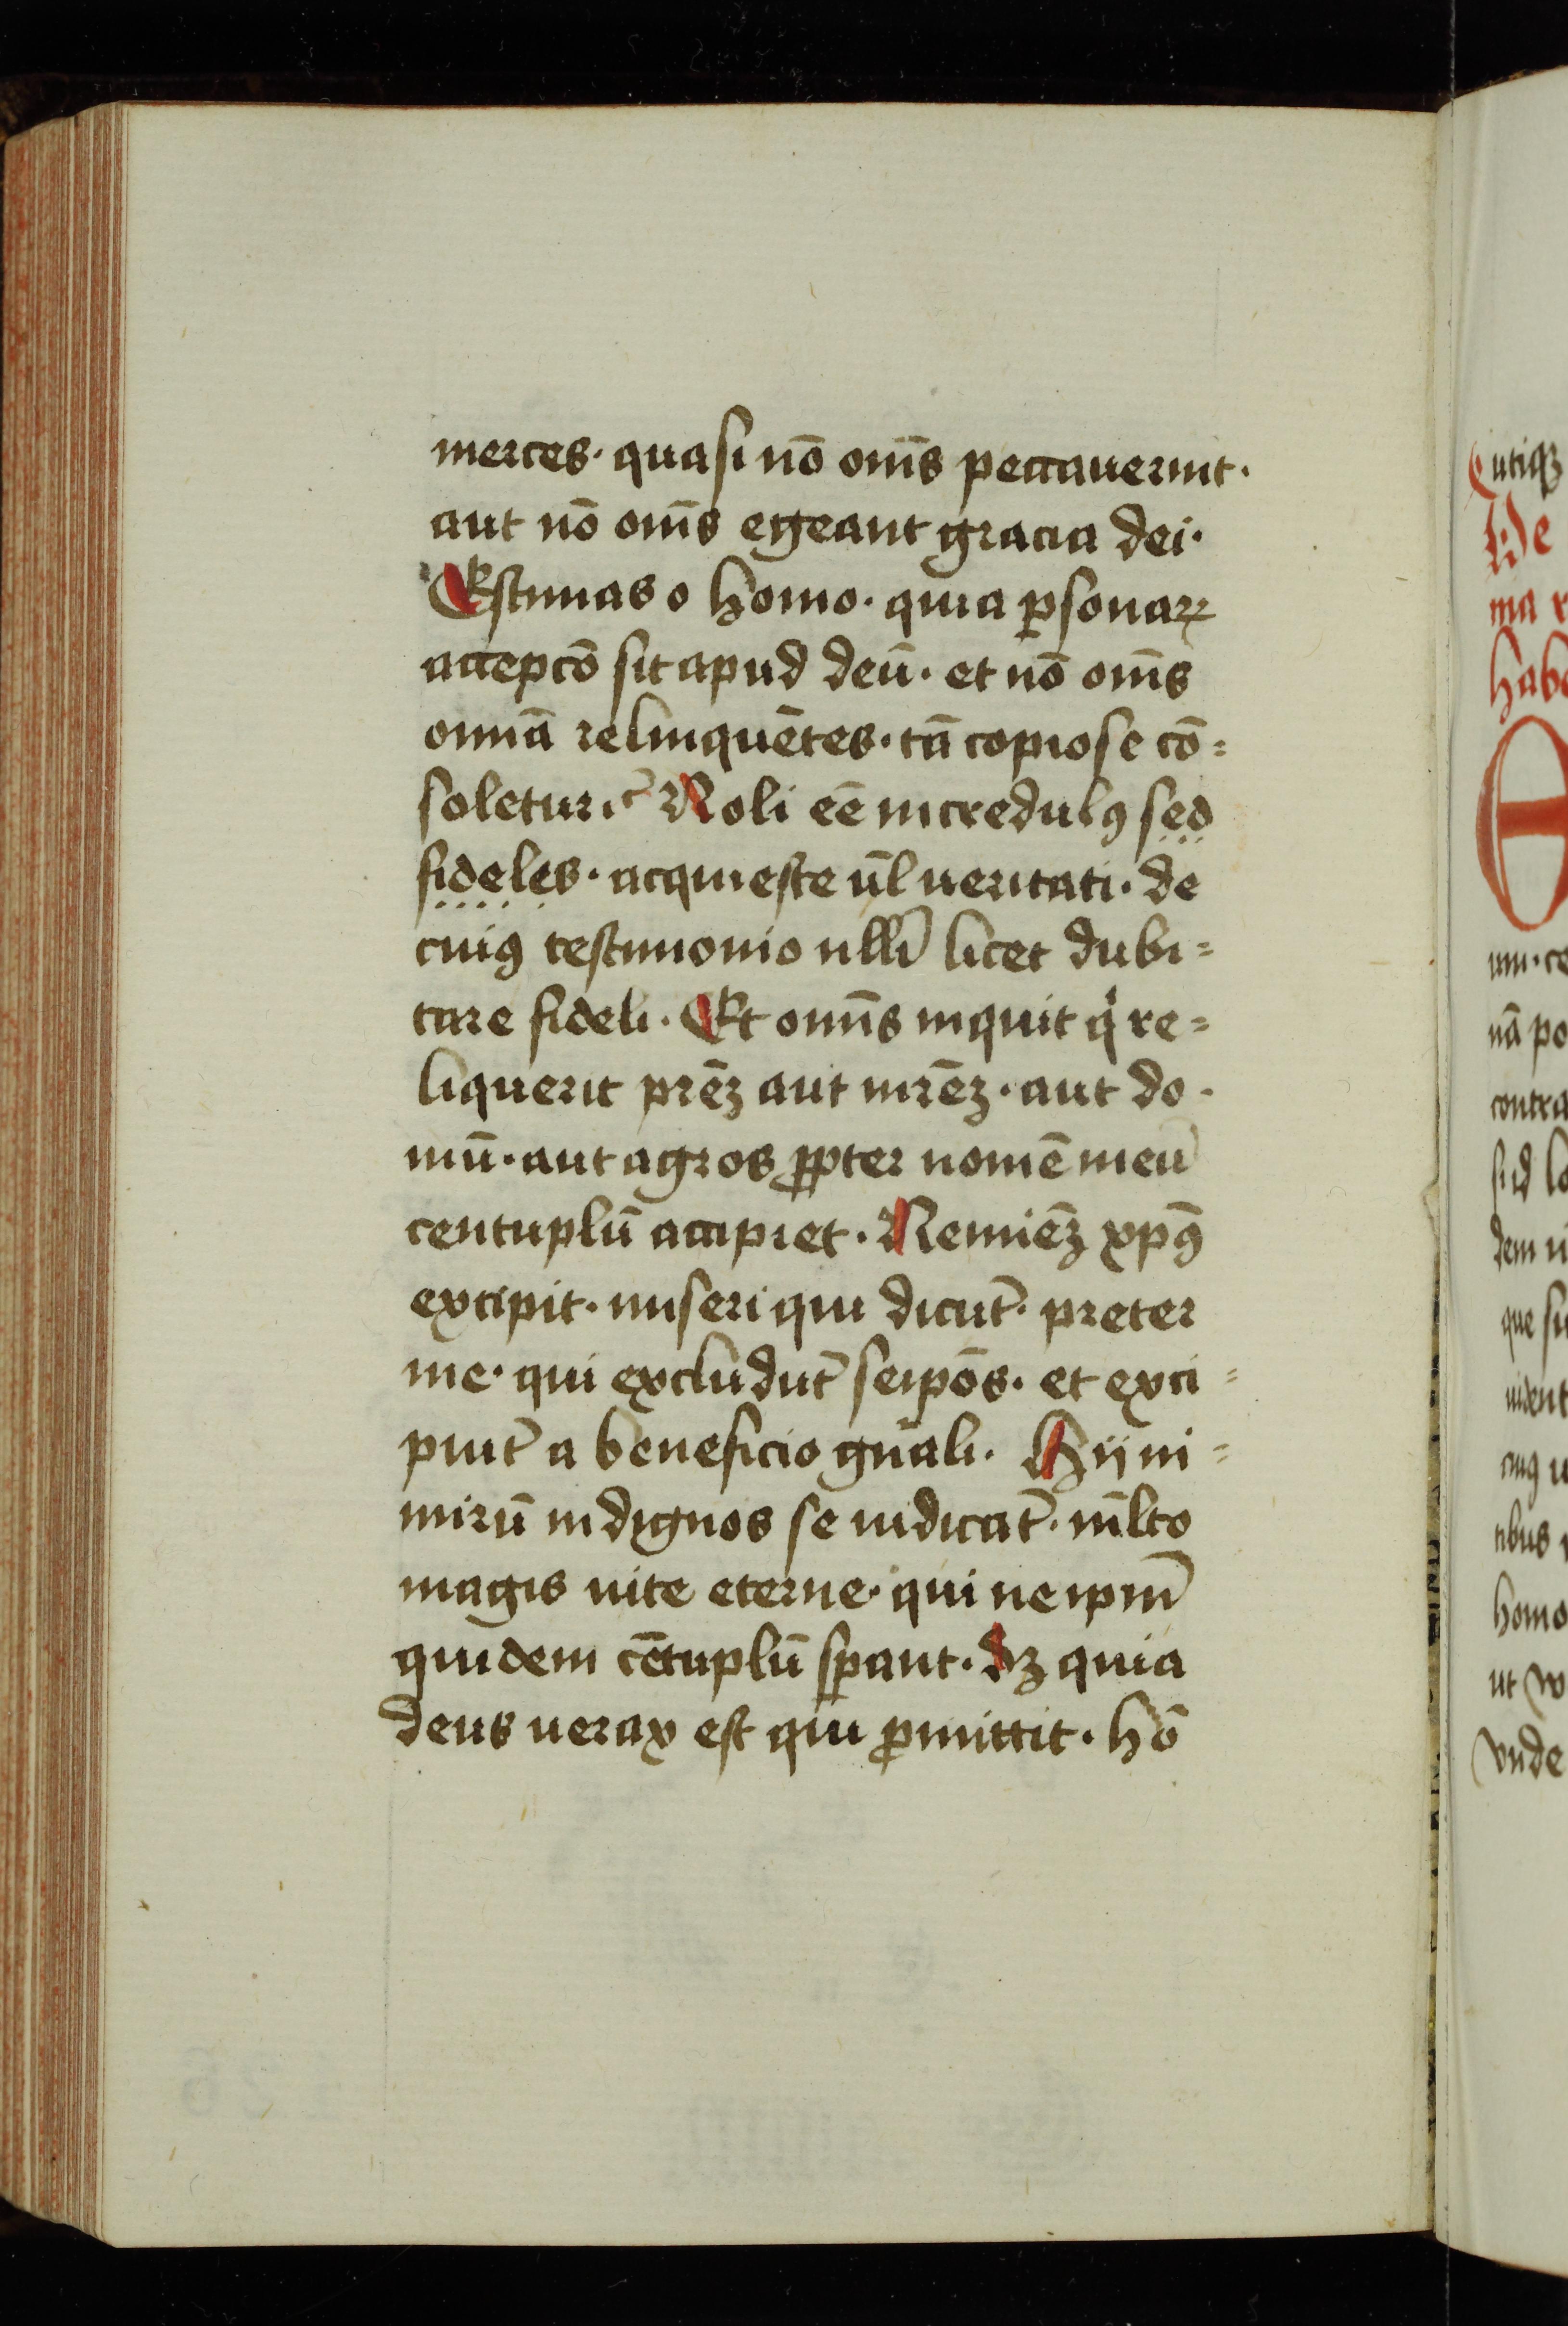 merces· quasi nō om̄s peccauerint·
aut nō om̄s egeant gracia dei·
Estimas o homo· quia ꝑsonaꝝ
accepcō sit apud deū· et nō om̄s
omīa relinquētes· tā copiose cō=
soletur? Noli eē incredulꝰ sed
fideles· acquiesce ūl ueritati· de
cuiꝰ testimonio ulli licet dubi=
tare fideli· Et om̄is inquit qͥ re=
liquerit pr̄eꝫ aut mr̄eꝫ· aut do·
mū· aut agros ꝓpter nomē meū
centuplū accipiet· Neminēꝫ xp̄ꝰ
excipit· miseri qui dicūt· preter
me· qui excludūt seip̄os· et exci=
piūt a beneficio gn̄ali· Hij ni=
mirū indignos se iudicāt· ml̄to
magis uite eterne· qui ne ip̄m
quidem cētuplū sꝑant· Sꝫ quia
deus uerax est qui ꝓmittit· hō
utiqꝫ
De
ma
hab
O
nā po
contra
dem
que
homo
ut
vnde